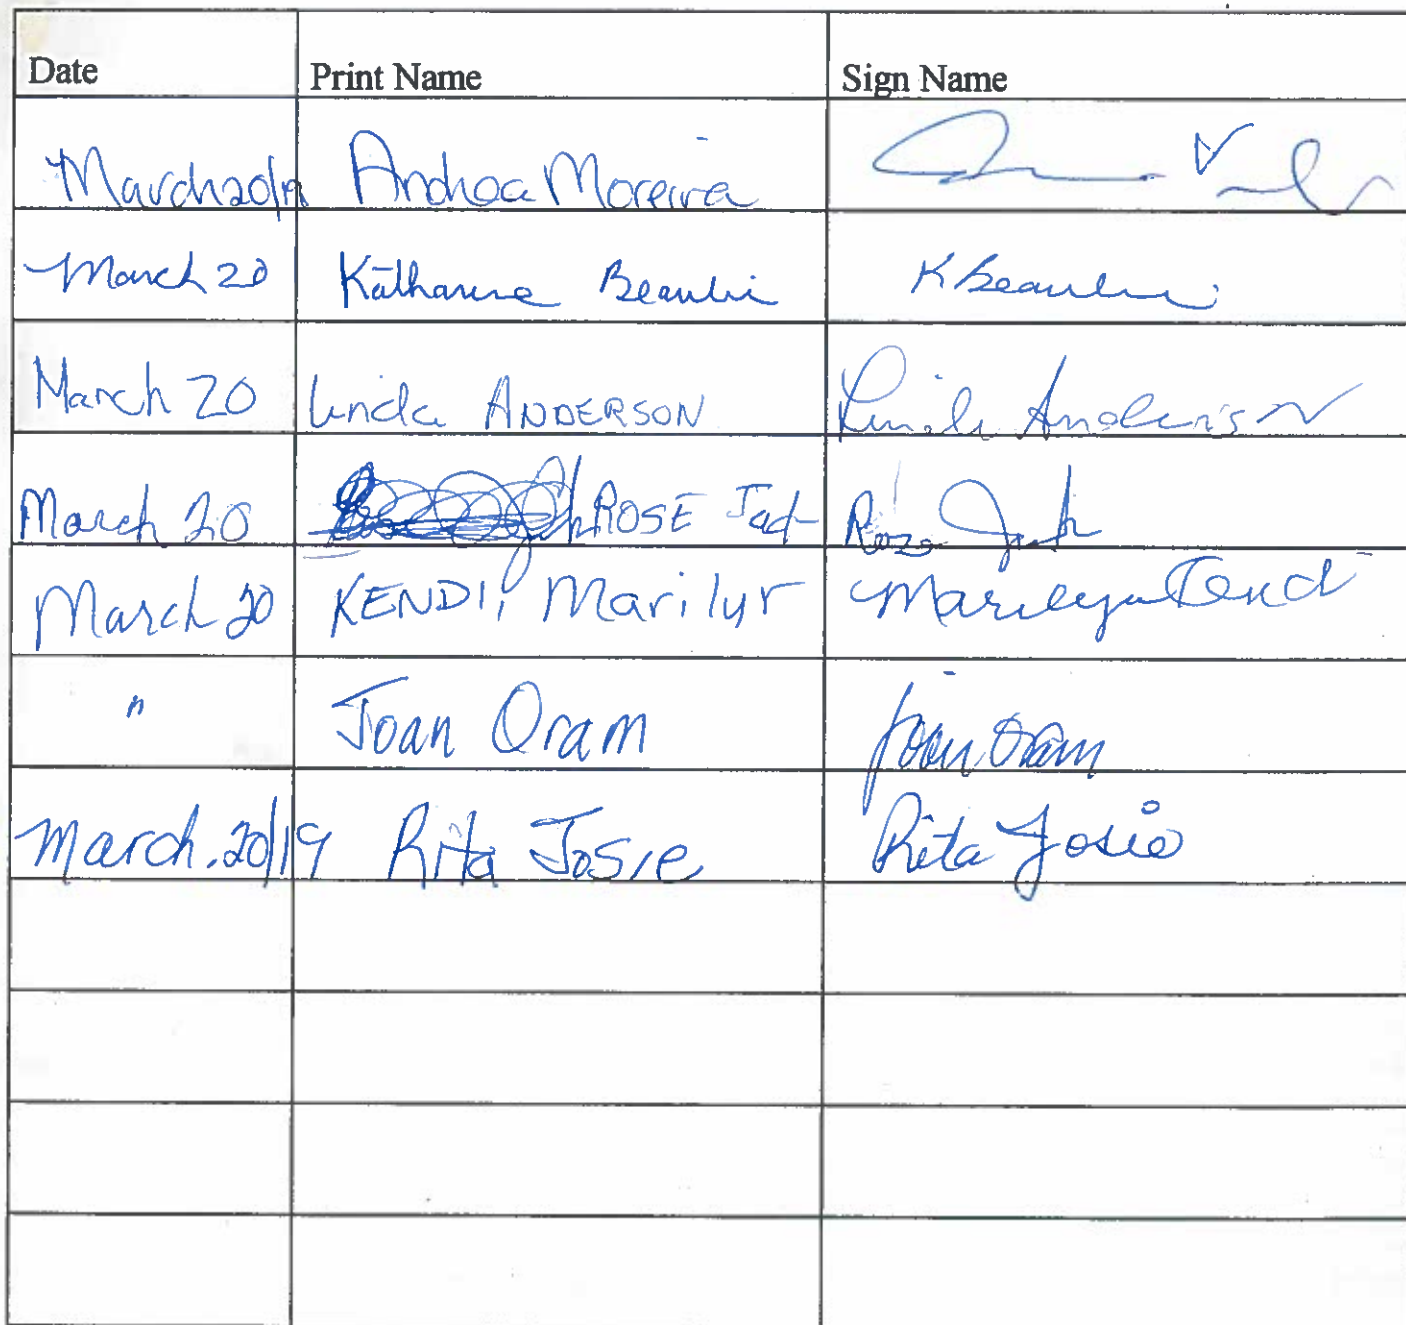 Date Print Name Sign Name
March 20/19 Andrea Moreira
March 20 Katharine Beaulie K Beaulie
March 20 Linda ANDERSON Linda Anderson
March 20 ROSE Jack Rose Jack
March 20 KENDI, Marilyn Marilyn Kendi
" Joan Oram Joan Oram
March.20/19 Rita Josie Rita Josie